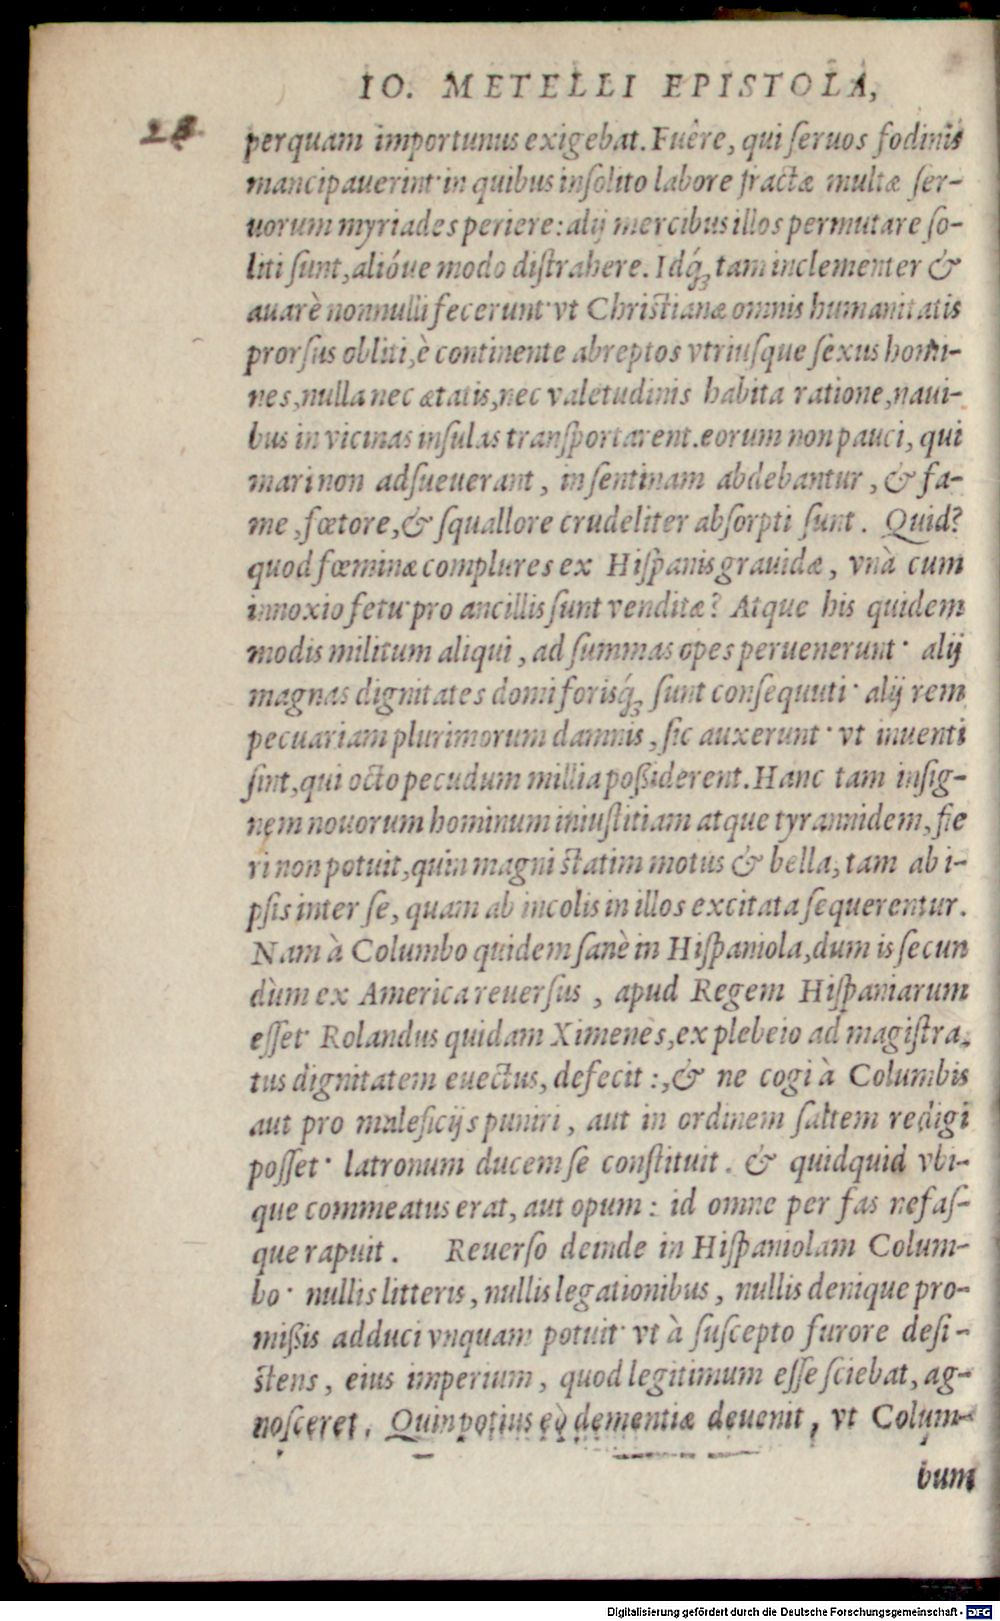 IO. METELLI EPISTOLA,
28
perquam importunus exigebat. Fuêre, qui ſeruos fodinis
mancipauerint· in quibus inſolito labore fractæ multæ ſer-
uorum myriades periere: alij mercibus illos permutare ſo-
liti ſunt, alióue modo diſtrahere. Idq́ꝫ tam inclementer &
auarè nonnulli fecerunt· vt Chriſtianæ omnis humanitatis
prorſus obliti, è continente abreptos vtriuſque ſexus homi-
nes, nulla nec ætatis, nec valetudinis habita ratione, naui-
bus in vicinas inſulas tranſportarent. eorum non pauci, qui
mari non adſueuerant, in ſentinam abdebantur, & fa-
me, fœtore, & ſquallore crudeliter abſorpti ſunt. Quid?
quod fœminæ complures ex Hiſpanis grauidæ, vnà cum
innoxio fetu· pro ancillis ſunt venditæ? Atque his quidem
modis militum aliqui, ad ſummas opes peruenerunt· alij
magnas dignitates domi forisq́ꝫ ſunt conſequuti· alij rem
pecuariam plurimorum damnis, ſic auxerunt· vt inuenti
ſint, qui octo pecudum millia poßiderent. Hanc tam inſig-
nem nouorum hominum iniuſtitiam atque tyrannidem, fie
ri non potuit, quin magni ſtatim motus & bella, tam ab i-
pſis inter ſe, quam ab incolis in illos excitata ſequerentur.
Nam à Columbo quidem ſanè in Hiſpaniola, dum is ſecun
dùm ex America reuerſus, apud Regem Hiſpaniarum
eſſet· Rolandus quidam Ximenes, ex plebeio ad magiſtra-
tus dignitatem euectus, defecit:, & ne cogi à Columbis
aut pro maleficijs puniri, aut in ordinem ſaltem redigi
poſſet· latronum ducem ſe conſtituit. & quidquid vbi-
que commeatus erat, aut opum: id omne per fas nefaſ-
que rapuit. Reuerſo deinde in Hiſpaniolam Colum-
bo· nullis litteris, nullis legationibus, nullis denique pro-
mißis adduci vnquam potuit· vt à ſuſcepto furore deſi-
ſtens, eius imperium, quod legitimum eſſe ſciebat, ag-
noſceret. Quin potius eò dementiæ deuenit, vt Colum-
bum
Digitalisierung gefördert durch die Deutsche Forschungsgemeinschaft - DFG